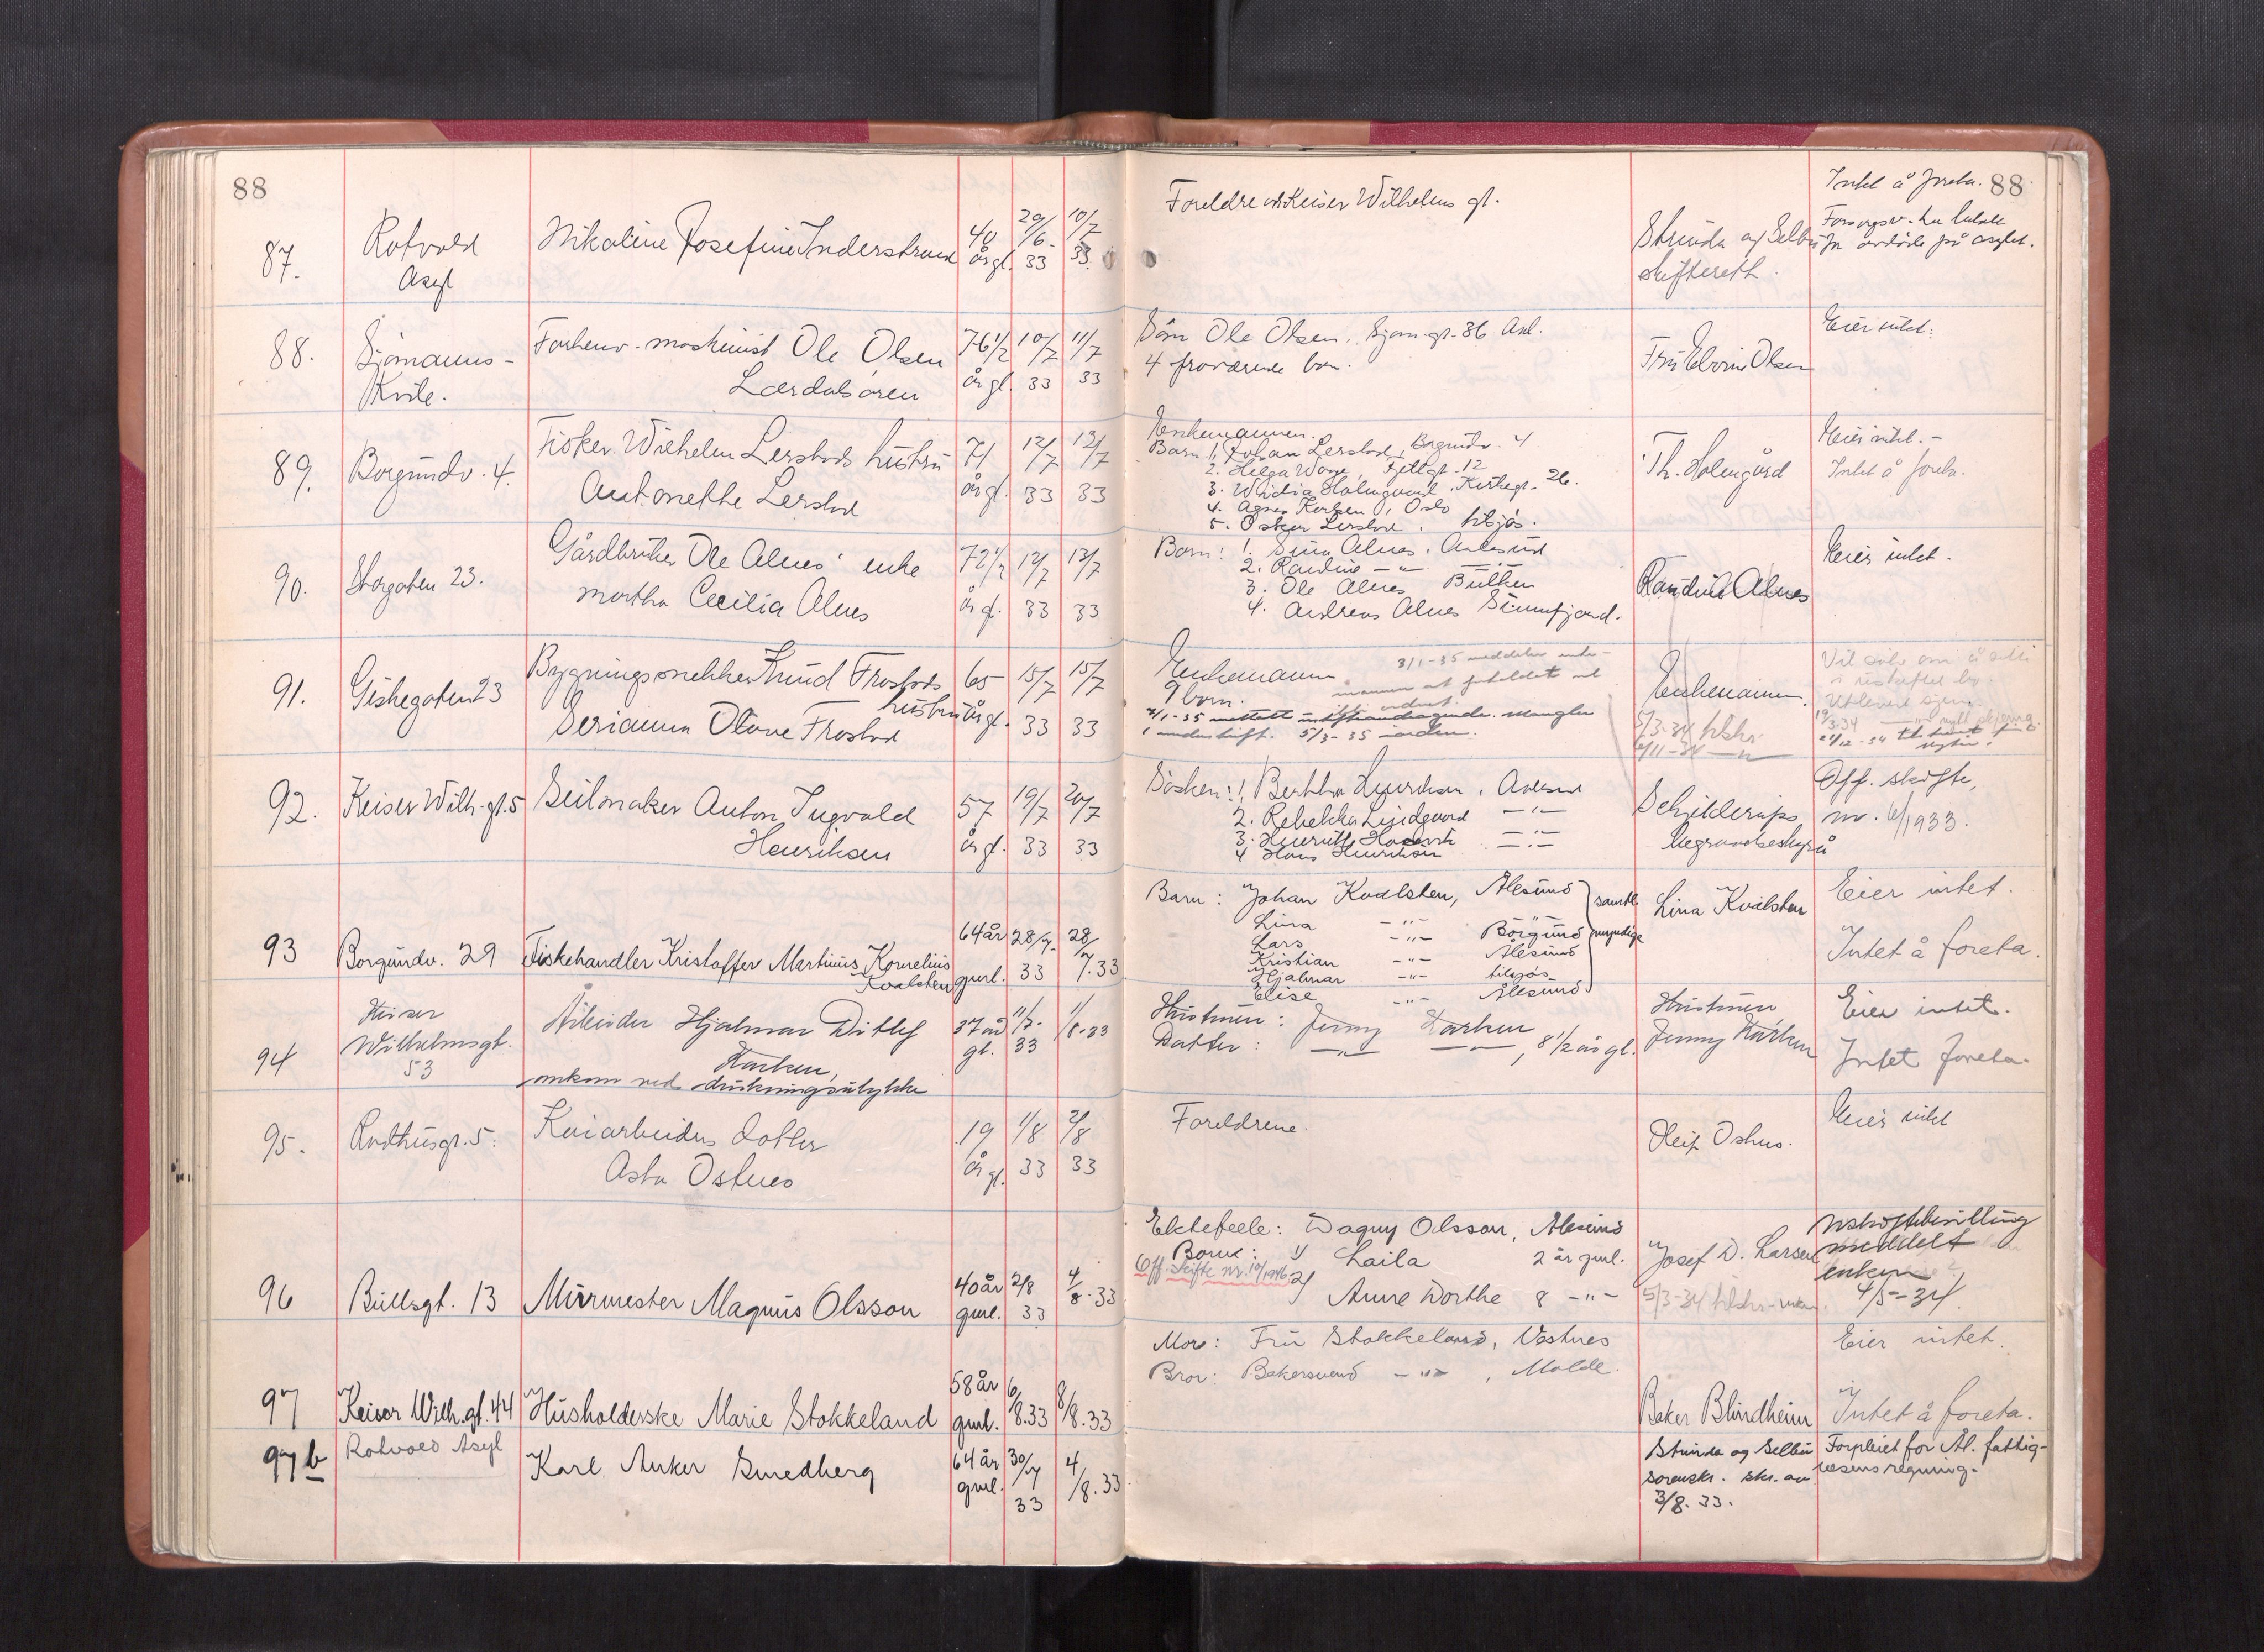 88
87.
Rotvold
Asyl
Nikoline Josefine Inderstrand
40
år gl.
29/6-
33
10/7
33.
88.
Sjömanns-
Kvile.
Forhenv. maskinist Ole Olsen
Lærdalsören
76 1/2
år gl.
10/7
33
11/7
33
89.
Borgundv. 4.
Fisker Wilhelm Lerstads hustru
Antonette Lerstad
71
år gl.
12/7
33
13/7
33
90.
Storgaten 23.
Gårdbruker Ole Alnes' enke
Martha Cecilia Alnes
72 1/2
år gl.
12/7
33
13/7
33
91.
Giskegaten 23
Bygningssnekker Knud Frostads
hustru
Serianna Olave Frostad
65
år gl.
15/7
33
15/7
33
92.
Keiser Wilh. gt. 5
Seilmaker Anton Ingvald
Henriksen
57
år gl.
19/7
33
20/7
33
93
Borgundv. 29
Fiskehandler Kristoffer Martinus Kornelius
Kvalsten
64 år
gml.
28/7-
33
28/7.33
94
Keiser
Wilhelmsgt.
53
Arbeider Hjalmar Ditlef
Harken,
omkom ved drukningsulykke
37 år
gl.
11/7-
33
1/8-33
95.
Rådhusgt. 5.
Kaiarbeiders datter
Asta Osnes
19
år gl.
1/8
33
2/8
33
96
Bullsgt. 13
Mürmester Magnus Olsson
40 år
gml.
2/8
33
4/8.33
97
Keiser Wilh. gt. 44
Husholderske Marie Stokkeland
58 år
gml.
6/8.33
8/8.33
97 b
Rotvold Asyl
Karl Anker Smedberg
64 år
gml.
30/7
33
4/8.33
88
Foreldre i Keiser Wilhelms gt.
Strinda og Selbu
skifterett.
Intet å foreta.
for avdöde på asylet.
Sönn Ole Olsen, Sjöm.gt. 36 Ål.
4 fraværende barn.
Fru Elvine Olsen
Eier intet.
Enkemannen.
Barn: 1. Johan Lerstad, Borgundv. 4
2. Helga Waage, Fjellgt. 12
3. Holmgaard, Kirkegt. 26.
4. Agnes, Oslo
5. Oskar Lerstad, tilsjös.
Th. Holmgård
Eier intet.-
Intet å foreta.
Barn: 1. Sina Alnes, Aalesund
2. Randine -"- -"-
3. Ole Alnes
4. Andreas Alnes
Randine Alnes
Eier intet.
Enkemann.
9 barn.
3/1-35 meddeler enke-
mannen at
underskrift. 5/3-35 i orden.
Enkemannen.
5/3-34 tilskr.
6/11-34 -"-
Vil söke om å sitte
i uskiftet bo.
Utlevert skjema.
19/3.34 -"- nytt skjema.
Sösken: 1. Bertha Henriksen, Aalesund
2. Rebekka Lindgaard -"-
3. -"-
4 Hans Henriksen
Begravelsesbyrå
Off. skifte,
nr. 6/1933.
Barn: Johan Kvalsten, Ålesund
Lina -"- Borgund
Lars -"-
Kristian -"- Ålesund
Hjalmar -"- tilsjös
Elise -"- Ålesund
samtl.
myndige
Lina Kvalsten
Eier intet.
Intet å foreta.
Hustruen: Jenny Harken
Datter: -"- -"-, 8 1/2 år gl.
Hustruen,
Jenny Harken
Eier intet.
Intet foreta.
Foreldrene.
Eier intet
Ektefeele: Dagny Olsson, Ålesund
Barn: 1/ Laila 2 år gml.
Off. Skifte nr. 10/1946
2/ Anne Dorthe 8 -"-
Josef D. Larsen
5/3-34 tilskr.
Uskiftebevilling
meddelt
enken
4/5-34.
Mor: Fru Stokkeland, Vestnes
Bror: Bakersvend -"-, Molde.
Baker Blindheim
Eier intet.
Intet å foreta.
Strinda og Selbu
sorenskr. skr. av
3/8.33.
Forpleiet for Ål. fattig-
vesens regning.